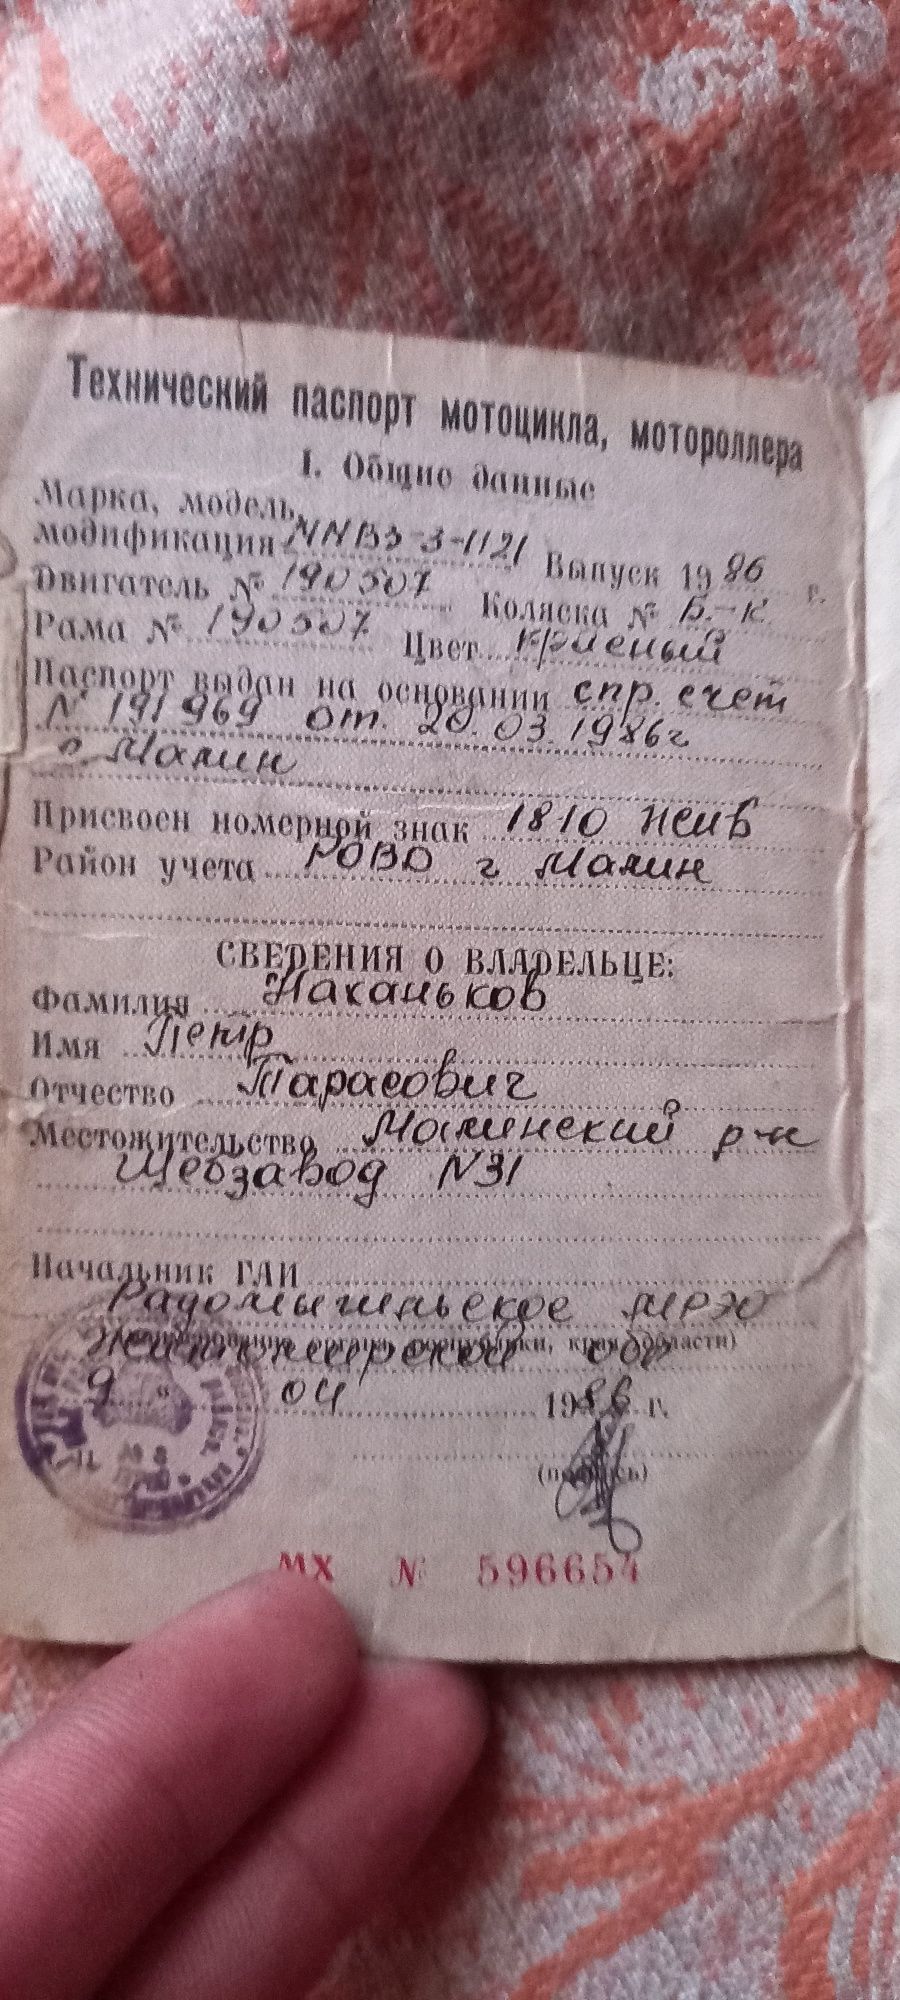 Технический паспорт мотоцикла, мотороллера
I. Общие данные
Марка, модель,
модификация ММВЗ-3-1121 Выпуск 1986 г.
Двигатель № 190507 Коляска № Б.-к
Рама № 190507 Цвет красный
Паспорт выдан на основании спр. счет
N 191969 от. 20.03.1986г
г. Малин
Присвоен номерной знак 1810 ЖИВ
Район учета РОВД г Малин
СВЕДЕНИЯ О ВЛАДЕЛЬЦЕ:
Фамилия
Имя Петр
Отчество Тарасович
Местожительство Малинский р-н
Щебзавод N31
Начальник ГАИ
Радомышльское МРЭО
(наименование органа республики, края, области)
Житомирской обл
9 " 04 1986 г.
(подпись)
МХ № 596654